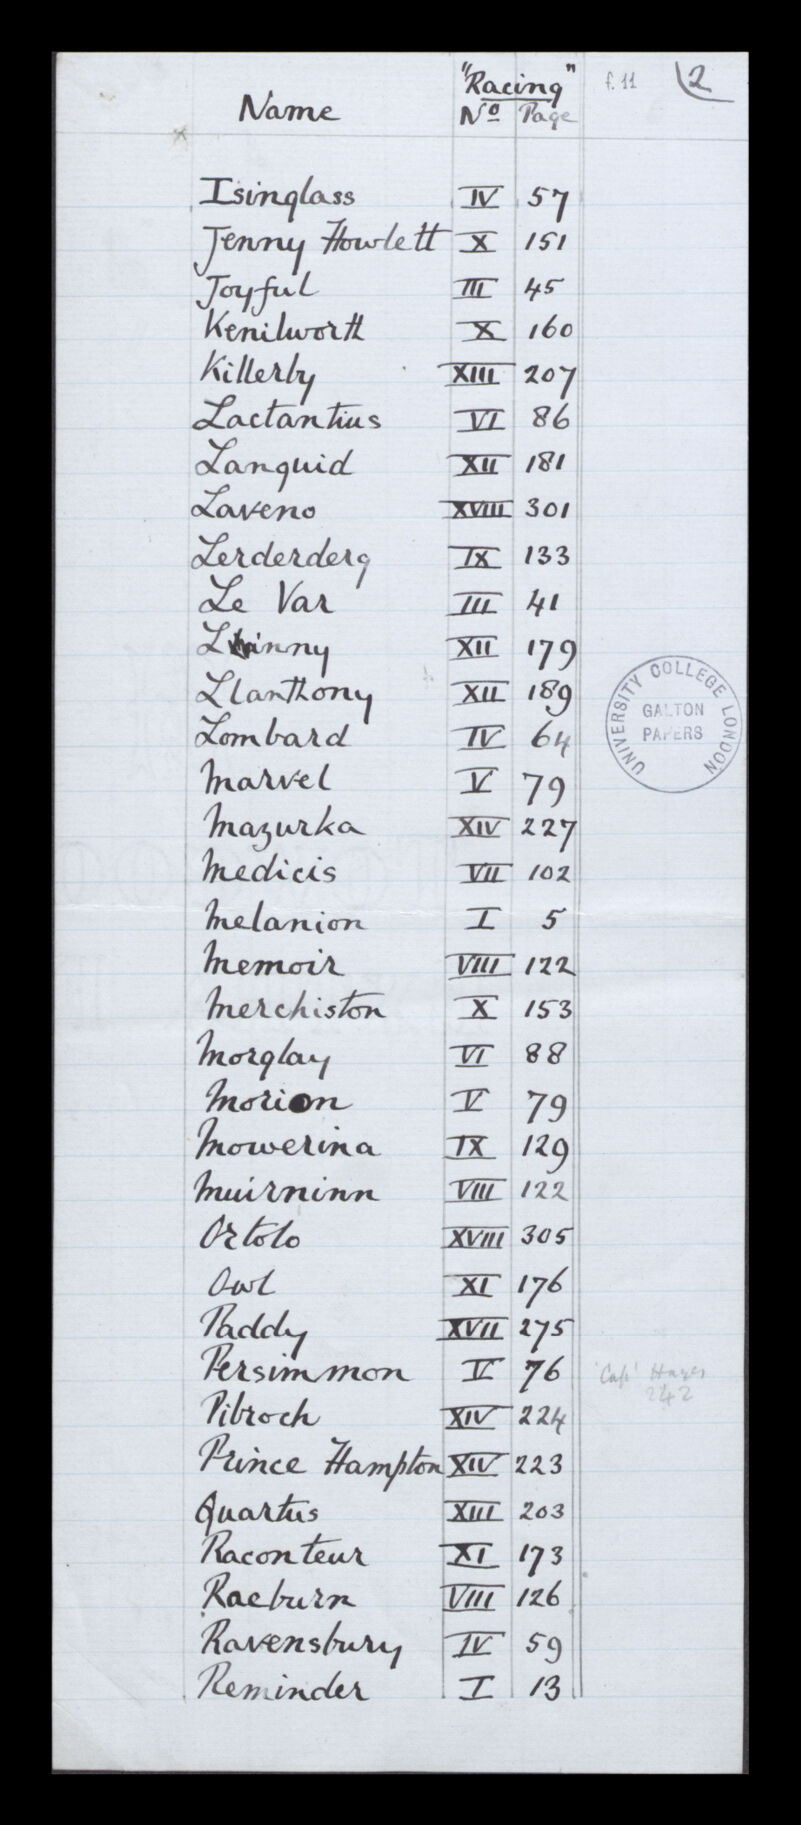 "Racing"
f. 11
2
Name Nº Page
Isinglass IV 57
Jenny Howlett X 151
Joyful III 45
Kenilworth X 160
Killerby XIII 207
Lactantius VI 86
Languid XII 181
Laveno XVIII 301
Lerderderg IX 133
Le Var III 41
XII 179
Llanthony XII 189
Lombard IV 64
Marvel V 79
Mazurka XIV 227
Medicis VII 102
Melanion I 5
Memoir VIII 122
Merchiston X 153
Morglay VI 88
Morion V 79
Mowerina IX 129
Muirninn VIII 122
Ortolo XVIII 305
Owl XI 176
Paddy XVII 275
Persimmon V 76
'Cap' Hayes
242
Pibroch XIV 224
Prince Hampton XIV 223
Quartus XIII 203
Raconteur XI 173
Raeburn VIII 126
Ravensbury IV 59
Reminder I 13
UNIVERSITY COLLEGE LONDON
GALTON
PAPERS